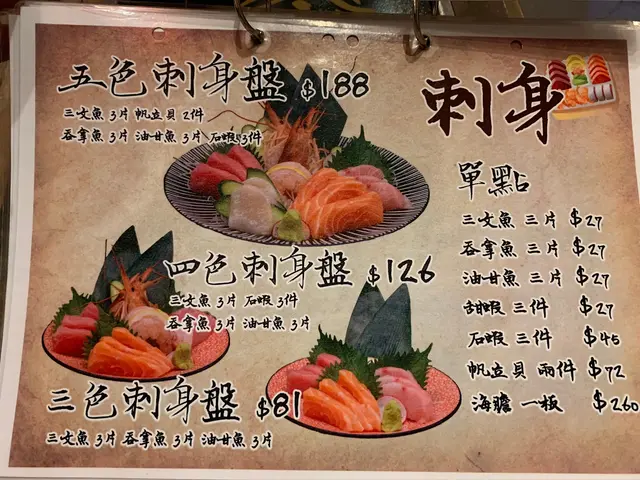 五色刺身盤 $188
三文魚 3片 帆立貝 2件
吞拿魚 3片 油甘魚 3片 石蝦 3件
四色刺身盤 $126
三文魚 3片 石蝦 3件
吞拿魚 3片 油甘魚 3片
三色刺身盤 $81
三文魚 3片 吞拿魚 3片 油甘魚 3片
刺身
單點
三文魚 三片 $27
吞拿魚 三片 $27
油甘魚 三片 $27
甜蝦 三件 $27
石蝦 三件 $45
帆立貝 兩件 $72
海膽 一板 $260